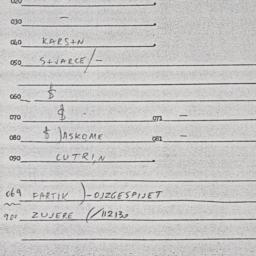 020
030 –
040 KARS+N
050 S+JARCE/–
060 $
070 $ 071 –
080 $ )ASKOME 081 –
090 CUTRIN
069 FARTIK )–OJZGESPIJET
900 ZUJERE (/11213